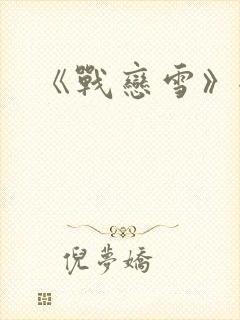 《戰戀雪》
倪夢嬌